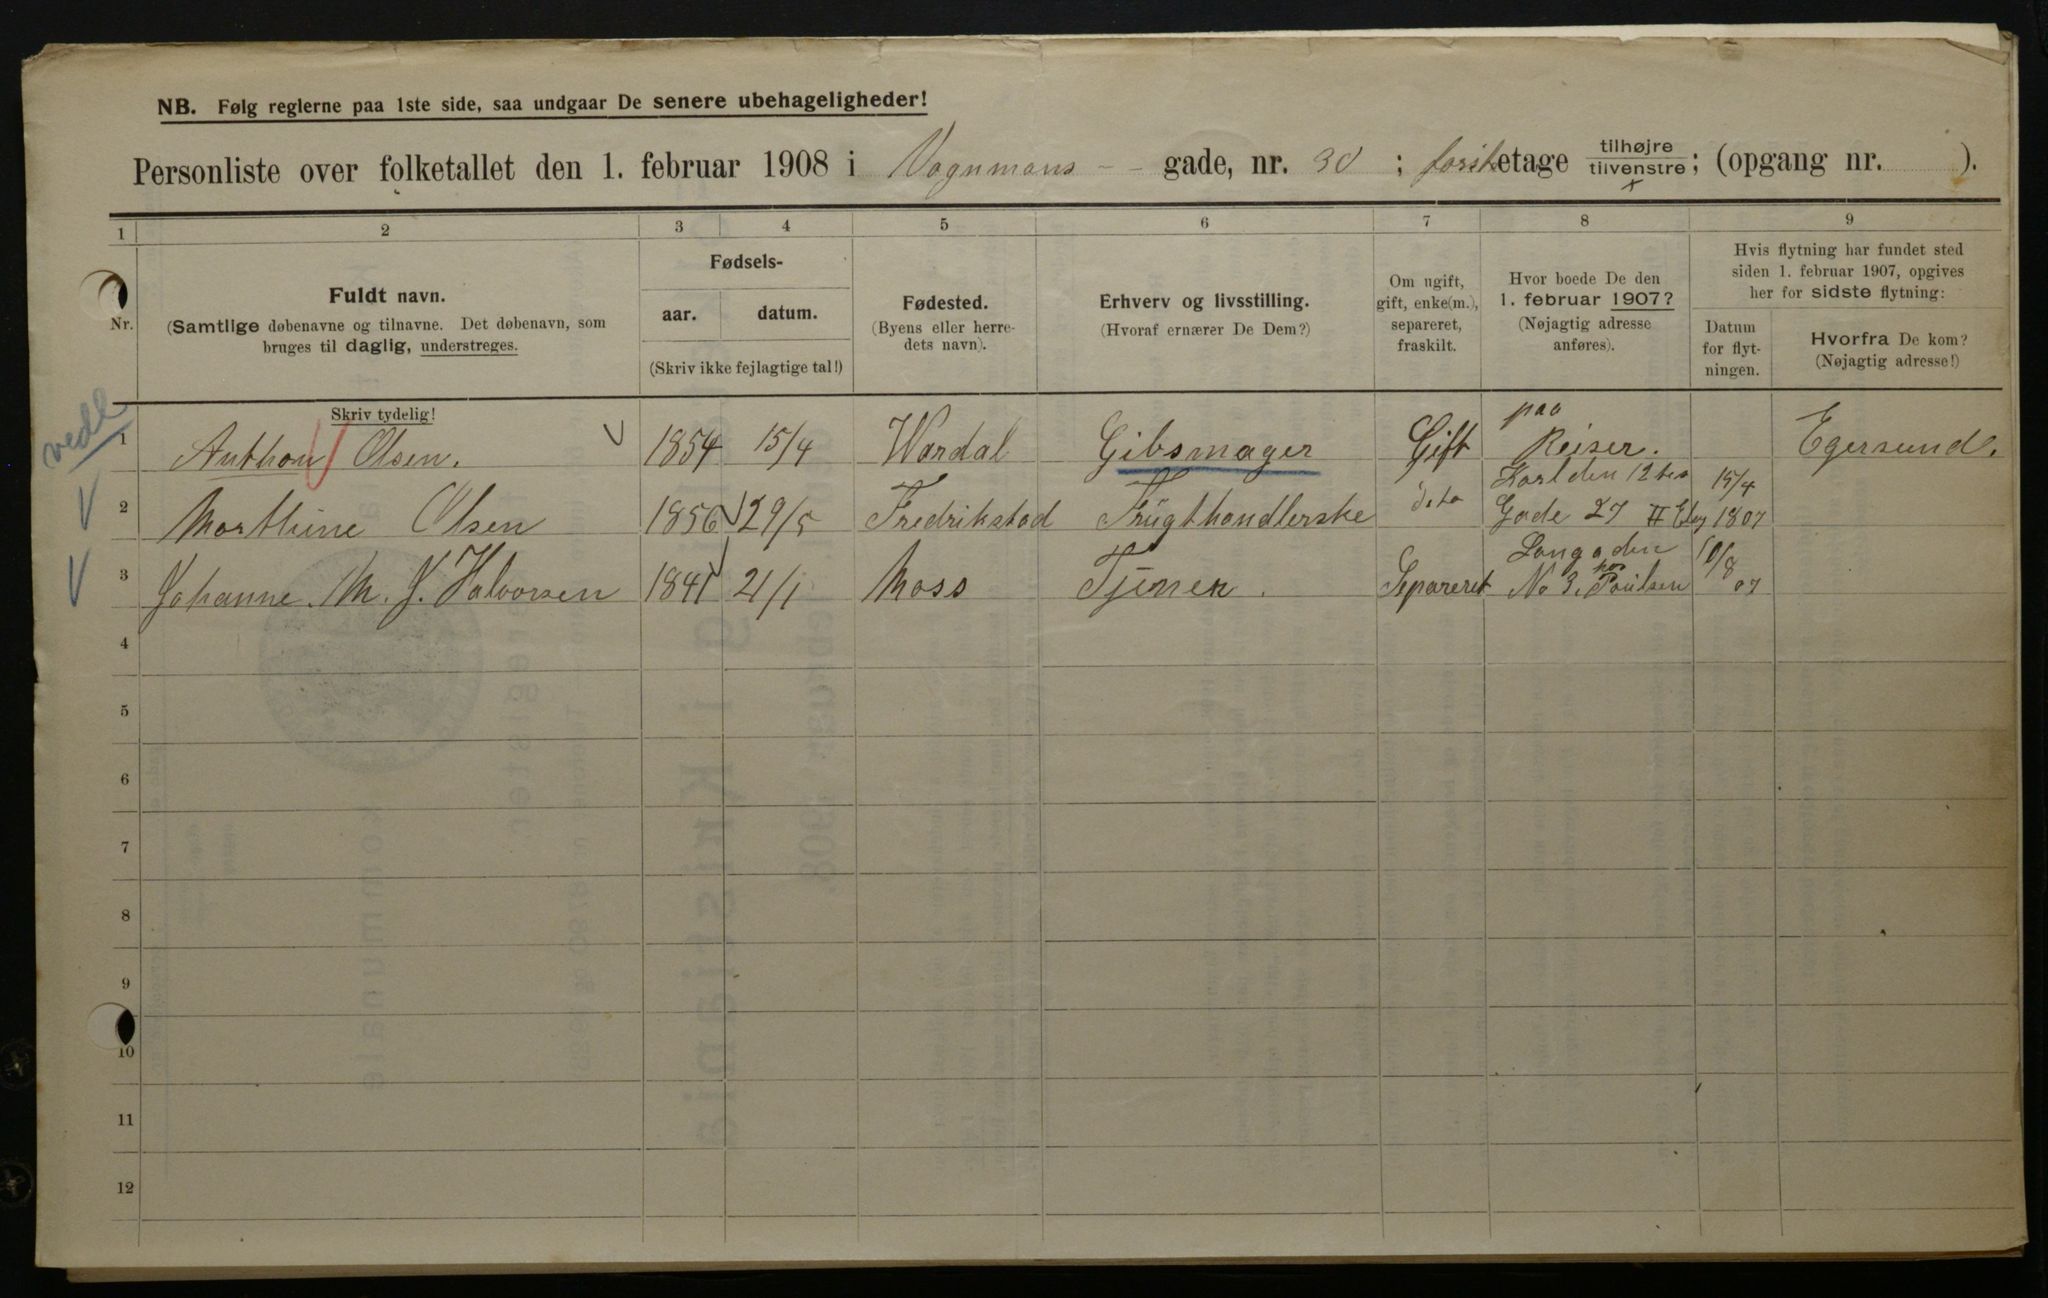 NB. Følg reglerne paa 1ste side, saa undgaar De senere ubehageligheder!
Personliste over folketallet den 1. februar 1908 i Vognmans - - gade, nr. 30 ; første etage tilhøjre tilvenstre; (opgang nr. ).
1 2 3 4 5 6 7 8 9
Nr.
Fuldt navn.
(Samtlige døbenavne og tilnavne. Det døbenavn, som
bruges til daglig, understreges.
Skriv tydelig!
Fødsels-
aar. datum.
(Skriv ikke fejlagtige tal!)
Fødested.
(Byens eller herre-
dets navn).
Erhverv og livsstilling.
(Hvoraf ernærer De Dem?)
Om ugift,
gift, enke(m.),
separeret,
fraskilt.
Hvor boede De den
1. februar 1907?
(Nøjagtig adresse
anføres).
Hvis flytning har fundet sted
siden 1. februar 1907, opgives
her for sidste flytning:
Datum
for flyt-
ningen.
Hvorfra De kom?
(Nøjagtig adresse!)
vedl
1 Anthon Olsen. 1854 15/4 Wardal Gibsmager Gift paa Reiser. Egersund.
2 Marthine Olsen 1856 29/5 Fredrikstad Frügthandlerske deto Karl den 12tes Gade 27 II Etag 15/4 1807
3 Johanne. M. J. Halvorsen 1841 21/1 Moss Tjener. Separeret Langgaden No 3. hos Paulsen 10/8 07
4
5
6
7
8
9
10
11
12